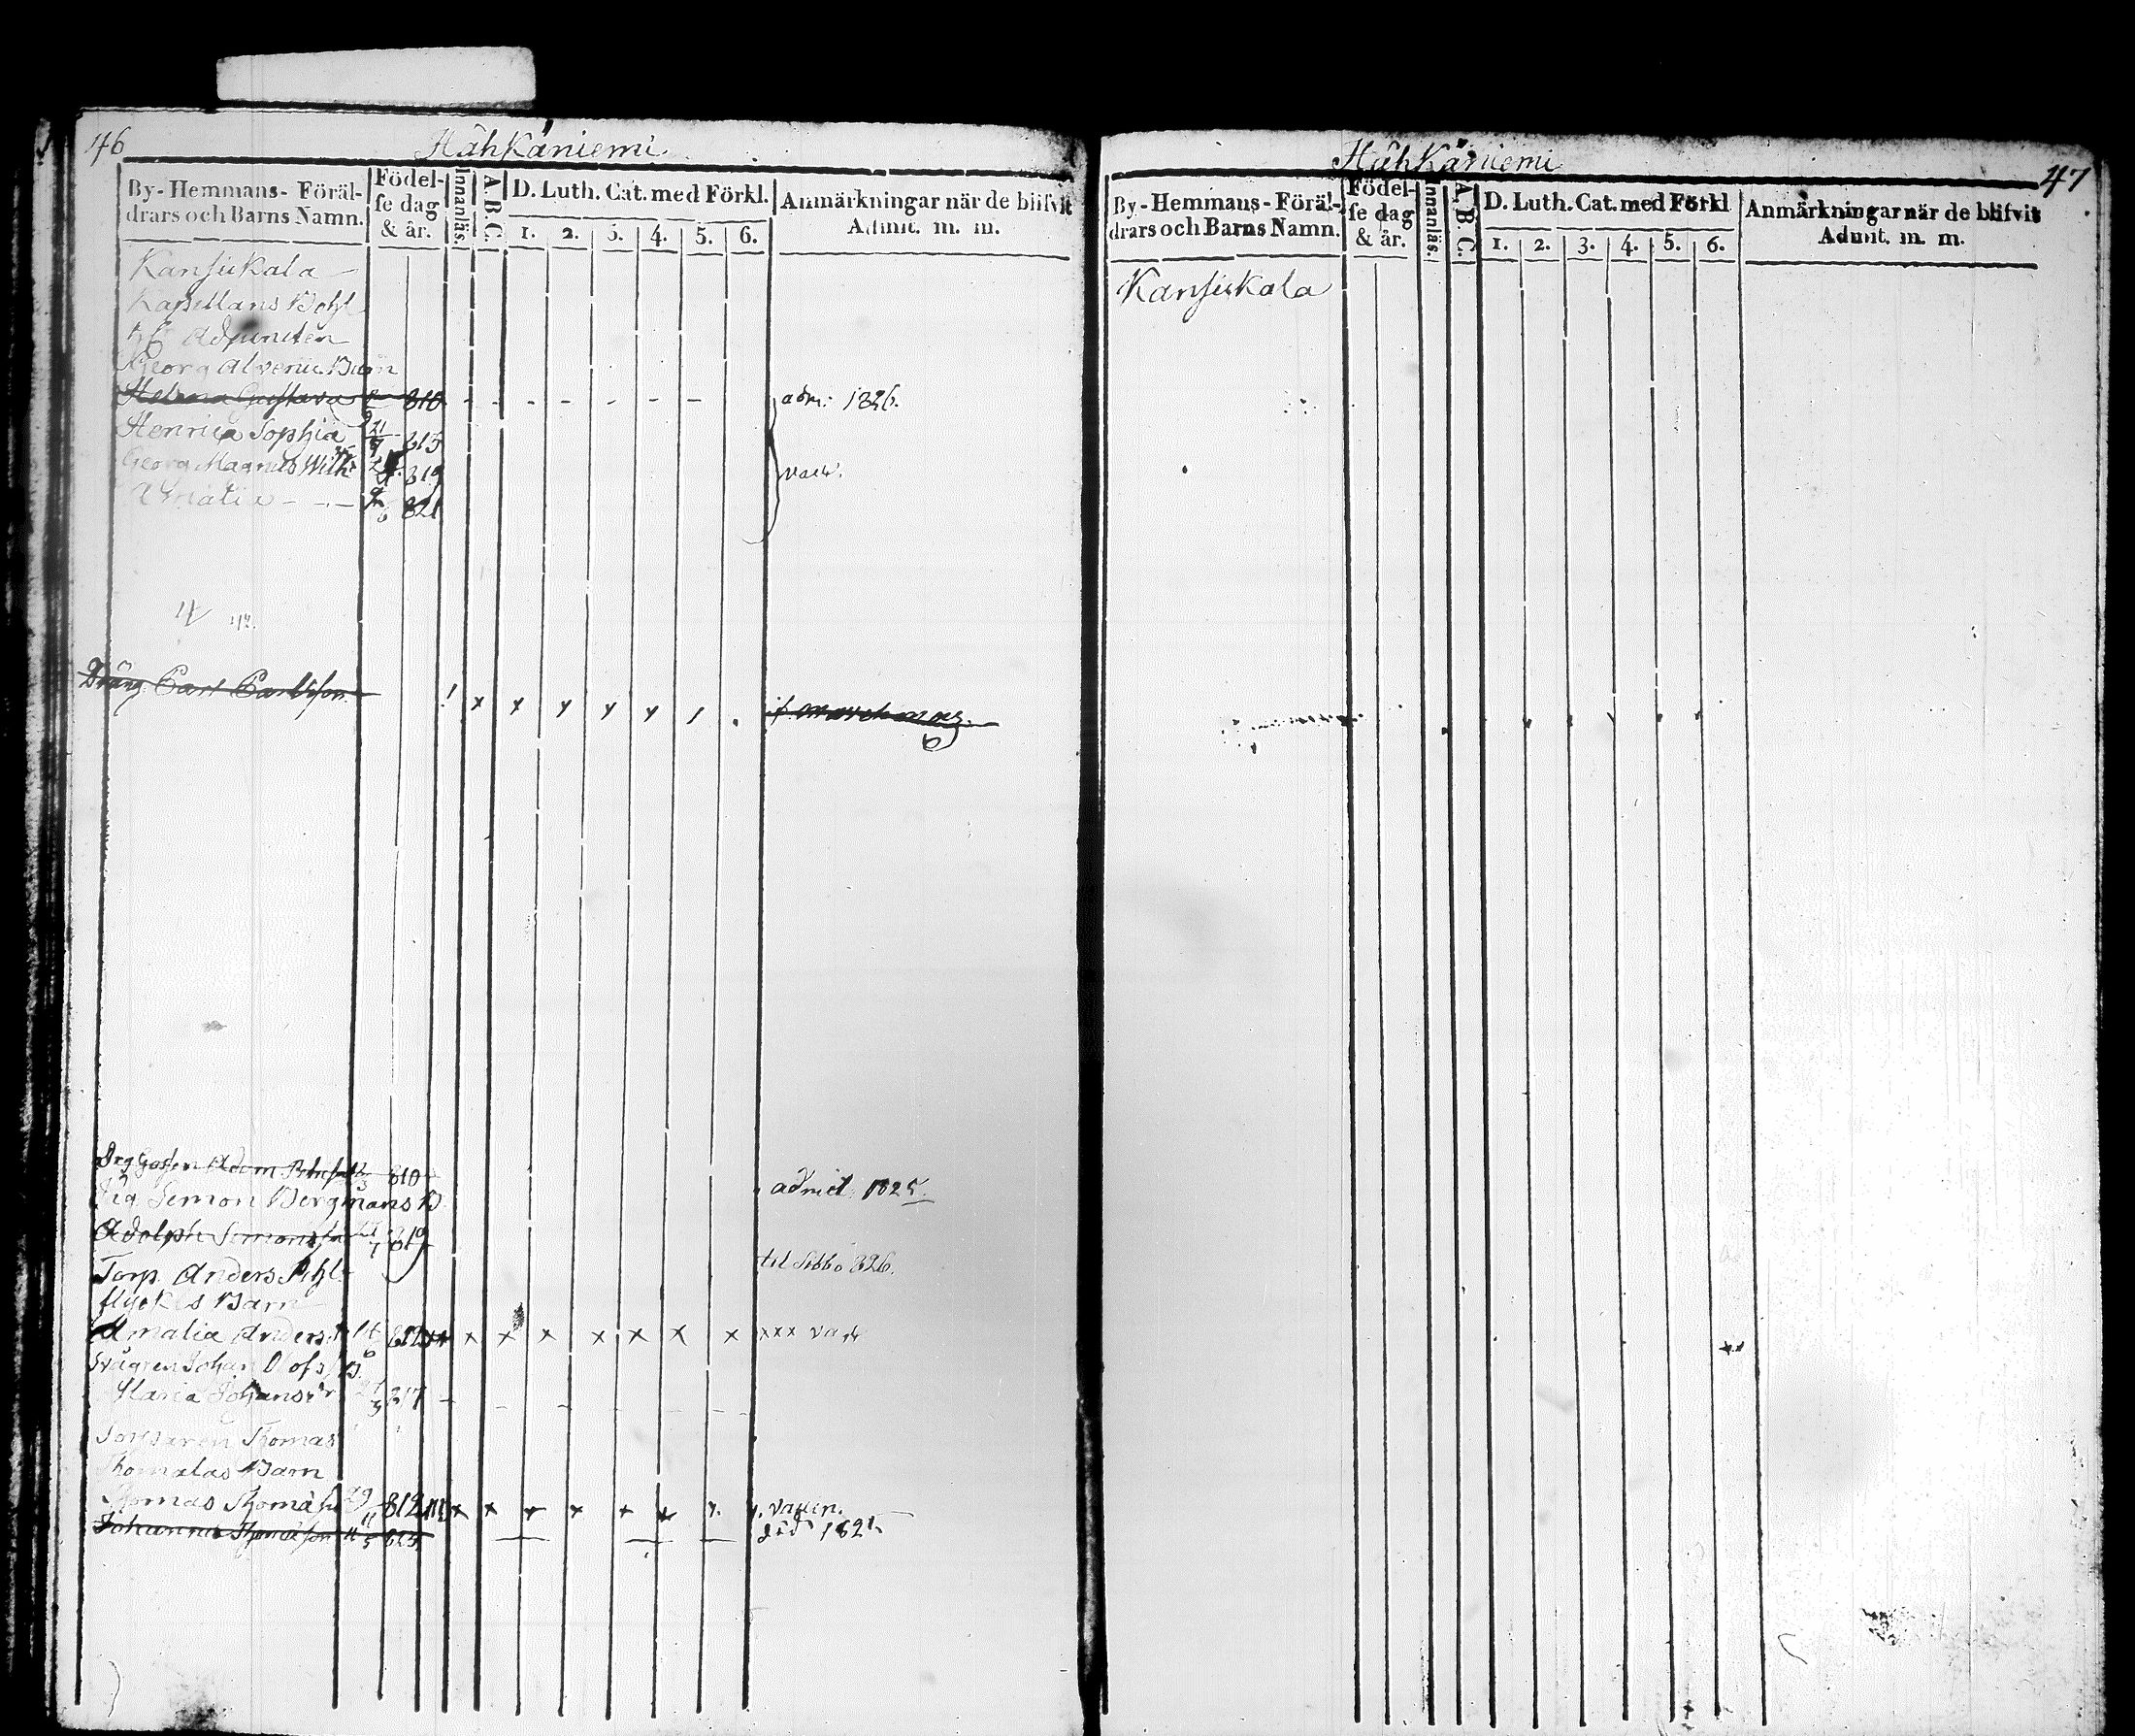 46
Hähkäniemi
By-Hemmans-Föräl-
drars och Barns Namn.
Födel-
se dag
& år.
Innanläs.
A.B.C.
D. Luth. Cat. med Förkl.
1. 2. 3. 4. 5. 6.
Anmärkningar när de blifvit
Admit. m. m.
Kansukala
Kapellans Bohl
Adjuncten
Georg Alverii Barn
Helena Gustava 810 - - - - - - adm: 1826.
Henrica Sophia 21/9 815
Georg Magnus Wilh: 819 vacc.
Amalia - - - 821
Dräng Carl Carlsson x x y y y
Adam 810 admit. 1825.
Simon Bergmans B.
Adolph Simonss 819
Torp. Anders til Sibbo 826.
flyckts Barn
Amalia Anders: 812 x x x x x x x xxx vacc
Svågren Johan Olofs B.
Maria Johansdr 817
Torparen Thomas
Thomalas Barn
Thomas Thomass 29/11 812 x x x x x x vaccin.
Johannes Thomasson 11/5 823 död 1825
47
Hähkäniemi
By-Hemmans-Föräl-
drars och Barns Namn.
Födel-
se dag
& år.
Innanläs.
A.B.C.
D. Luth. Cat. med Förkl
1. 2. 3. 4. 5. 6.
Anmärkningar när de blifvit
Admit. m. m.
Kansukala